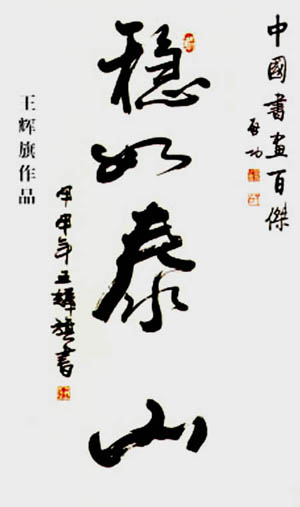 中國書畫百傑
启功
稳如泰山
甲申年王輝旗書
王辉旗作品